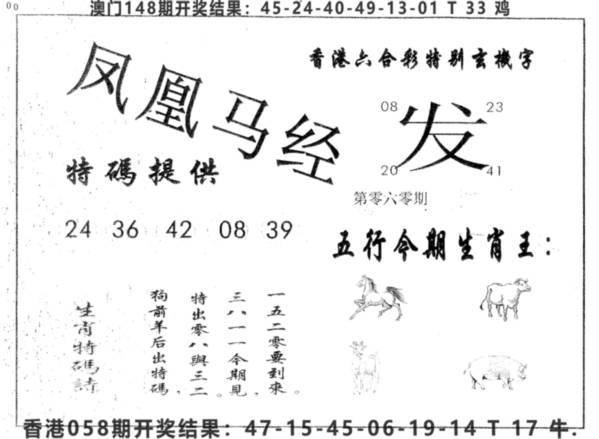 澳门148期开奖结果：45-24-40-49-13-01 T 33 鸡
香港六合彩特别玄機字
凤凰马经
08 23
发
20 41
特碼提供
第零六零期
24 36 42 08 39
五行今期生肖王：
一五二零要到來
三八一一今期見
特出零八與三二
狗前羊后出特碼
生肖特碼詩
香港058期开奖结果：47-15-45-06-19-14 T 17 牛.